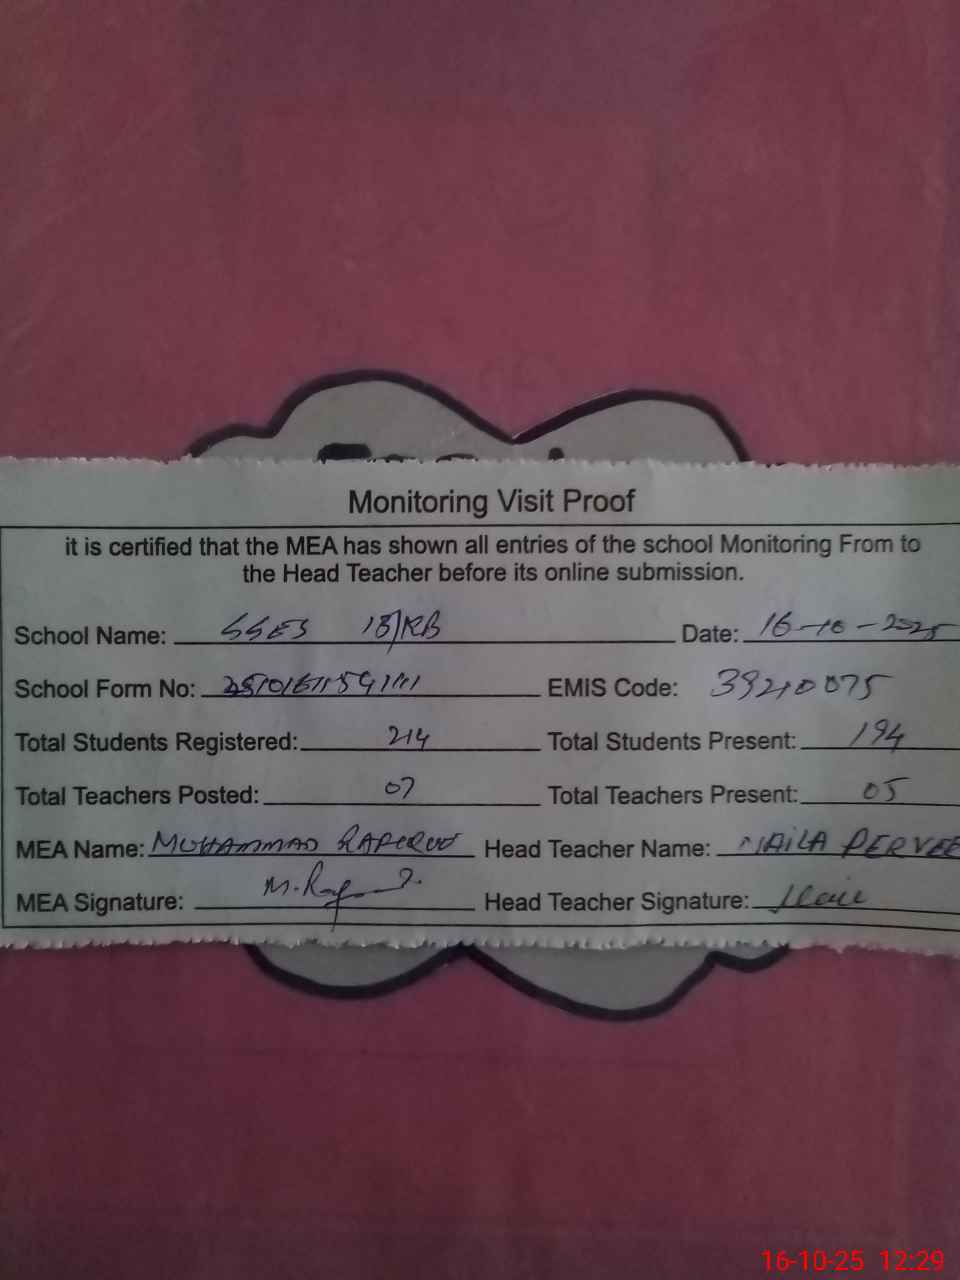 Monitoring Visit Proof
it is certified that the MEA has shown all entries of the school Monitoring From to
the Head Teacher before its online submission.
School Name: SSES 18/RB Date: 16-10-2025
School Form No: EMIS Code: 39210075
Total Students Registered: 214 Total Students Present: 194
Total Teachers Posted: 07 Total Teachers Present: 05
MEA Name: MUHAMMAD Head Teacher Name: NAILA PERVEE
MEA Signature: Head Teacher Signature:
16-10-25 12:29